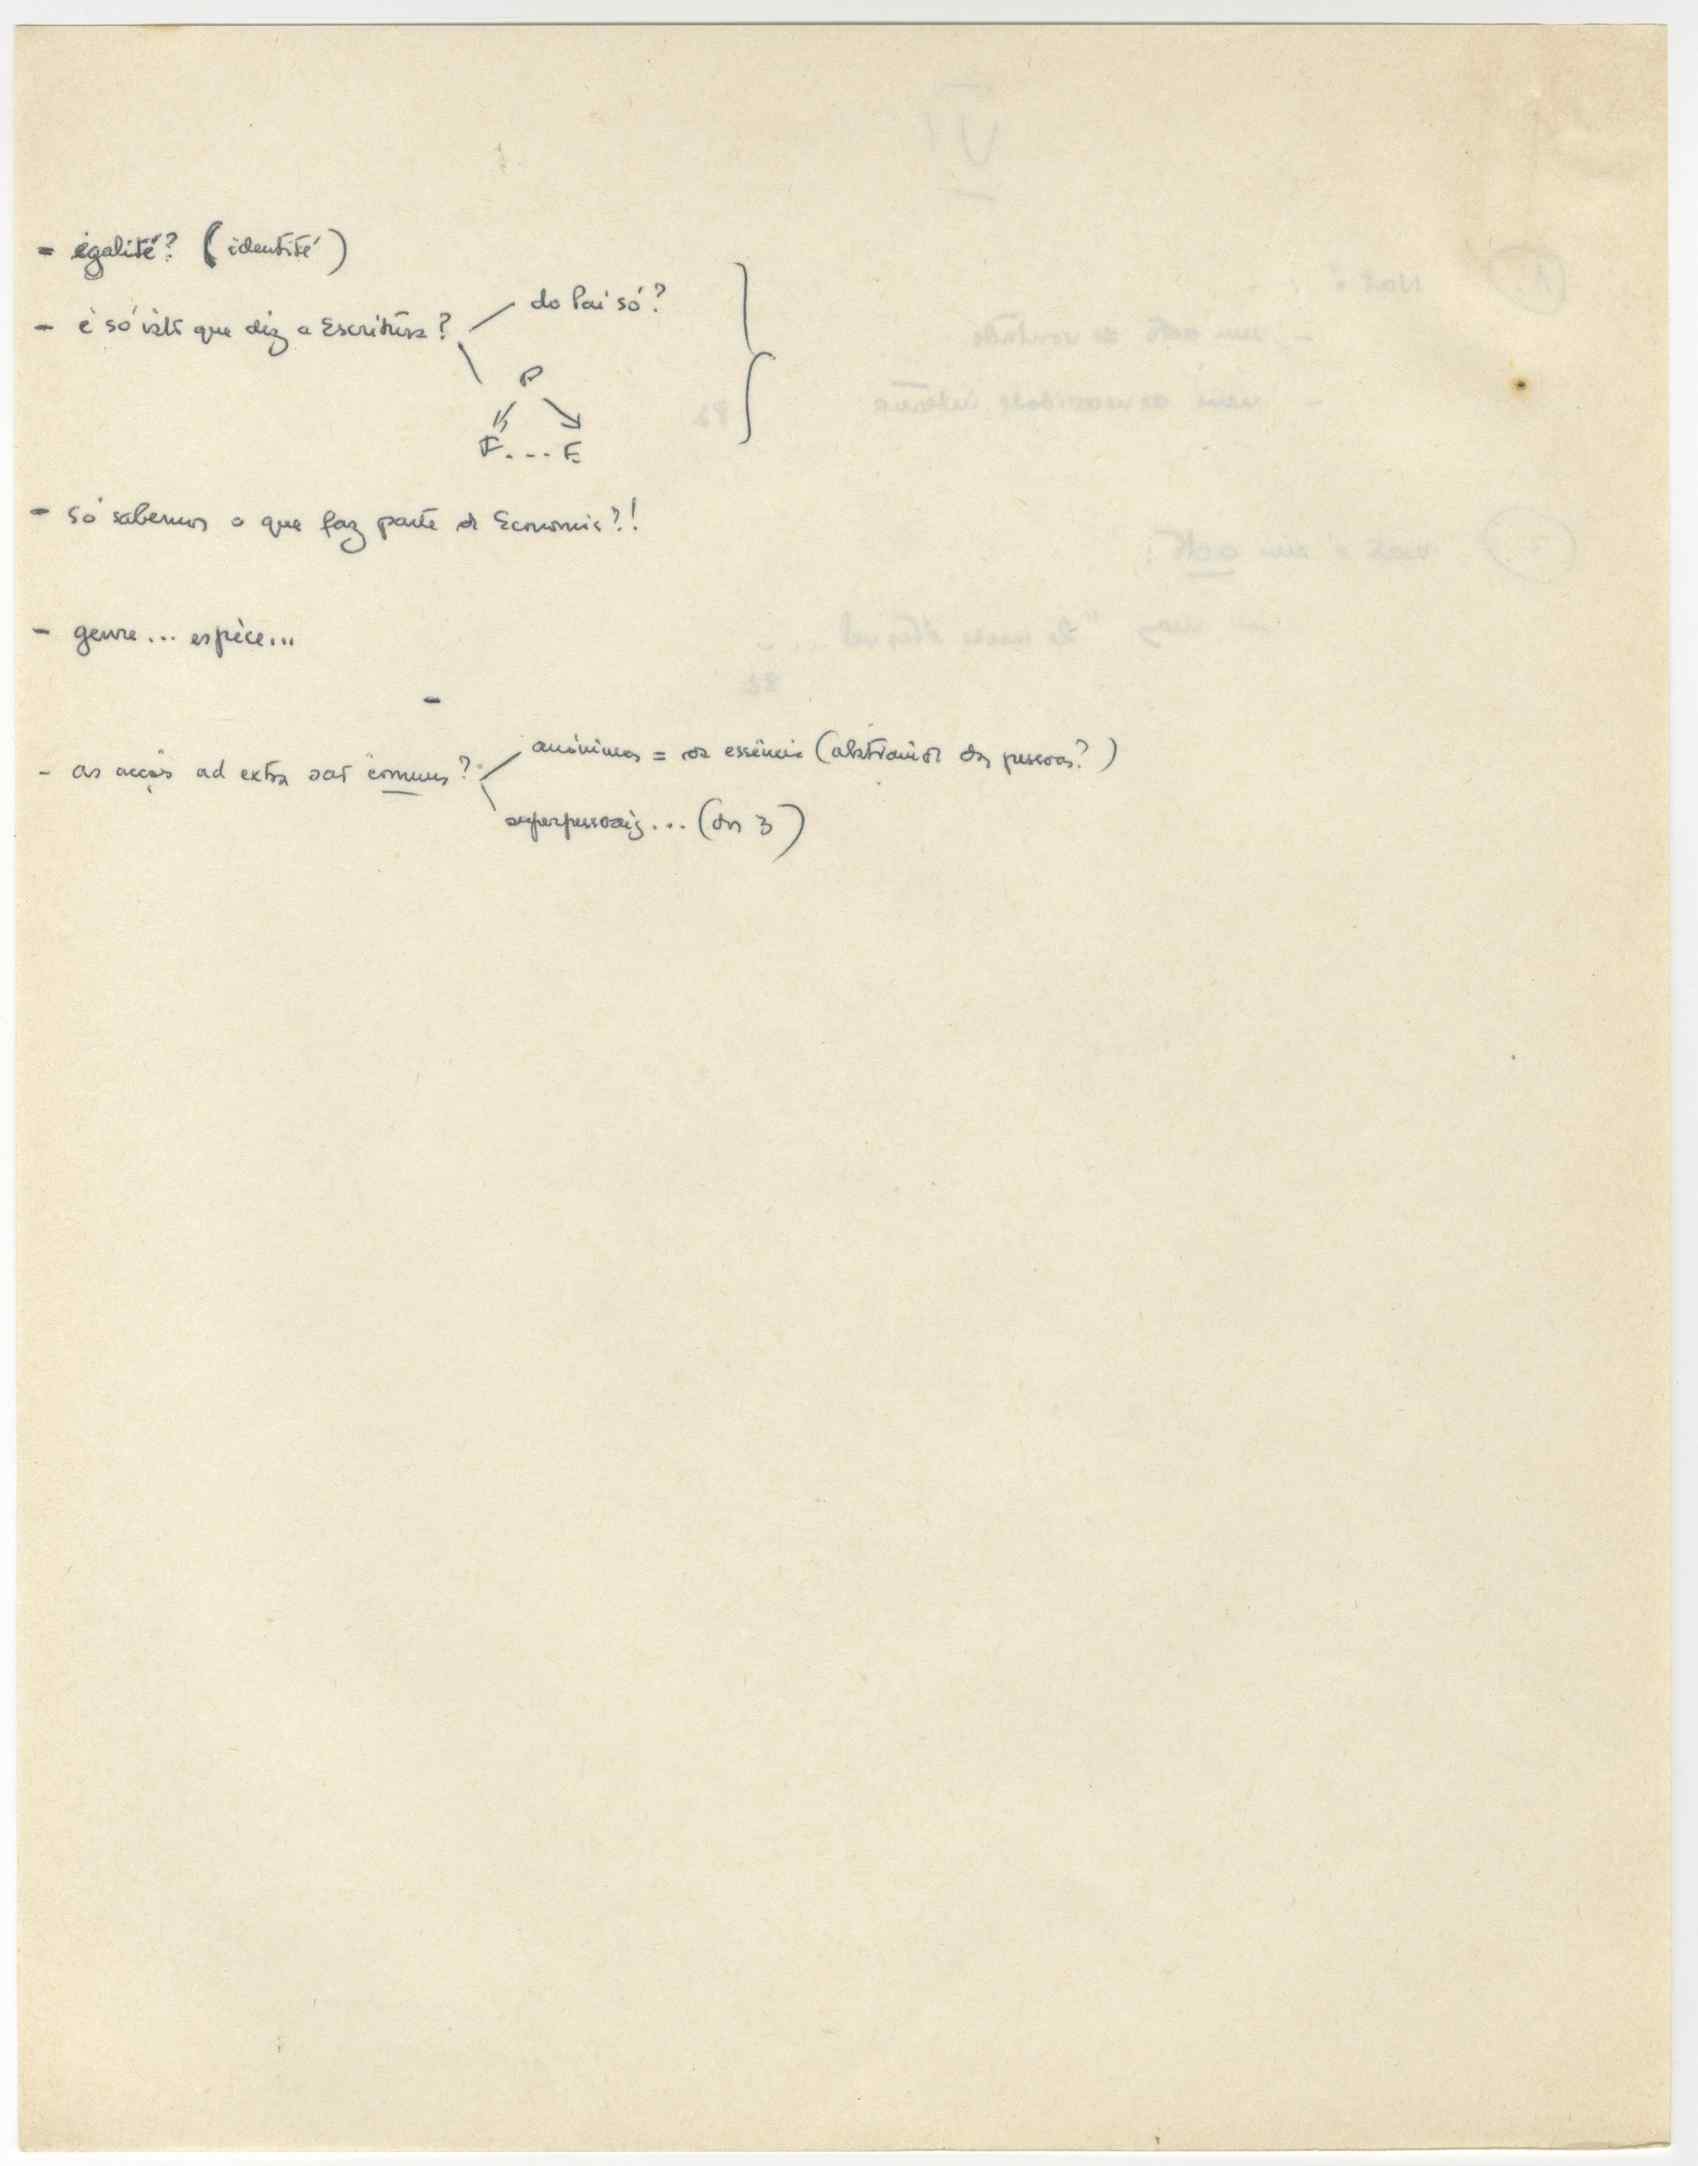 - égalité? (identité)
- é só isto que diz a Escritura?
do Pai só?
P
F...E
- só sabemos o que faz parte da Economia?!
- genre... espèce...
-
- as acções ad extra são comuns?
anónimas = da essência (abstraindo das pessoas?)
superpessoais... (dos 3)